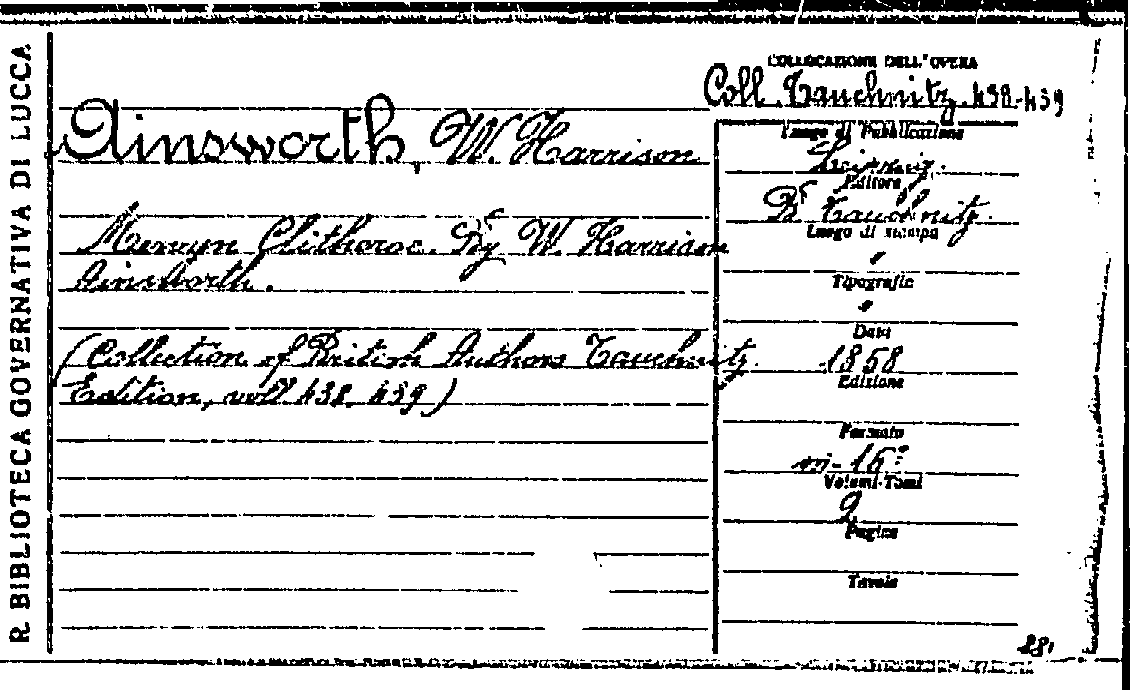 R. BIBLIOTECA GOVERNATIVA DI LUCCA
COLLOCAZIONE DELL'OPERA
Coll. Tauchnitz. 438-439
Ainsworth, W. Harrison
Mervyn Clitheroe. By W. Harrison
Ainsworth.
(Collection of British Authors Tauchnitz
Edition, voll 438. 439)
Luogo di Pubblicazione
Leipzig.
Editore
B. Tauchnitz.
Luogo di stampa
Tipografia
Data
1858
Edizione
Formato
in-16°
Volumi-Tomi
2
Pagine
Tavole